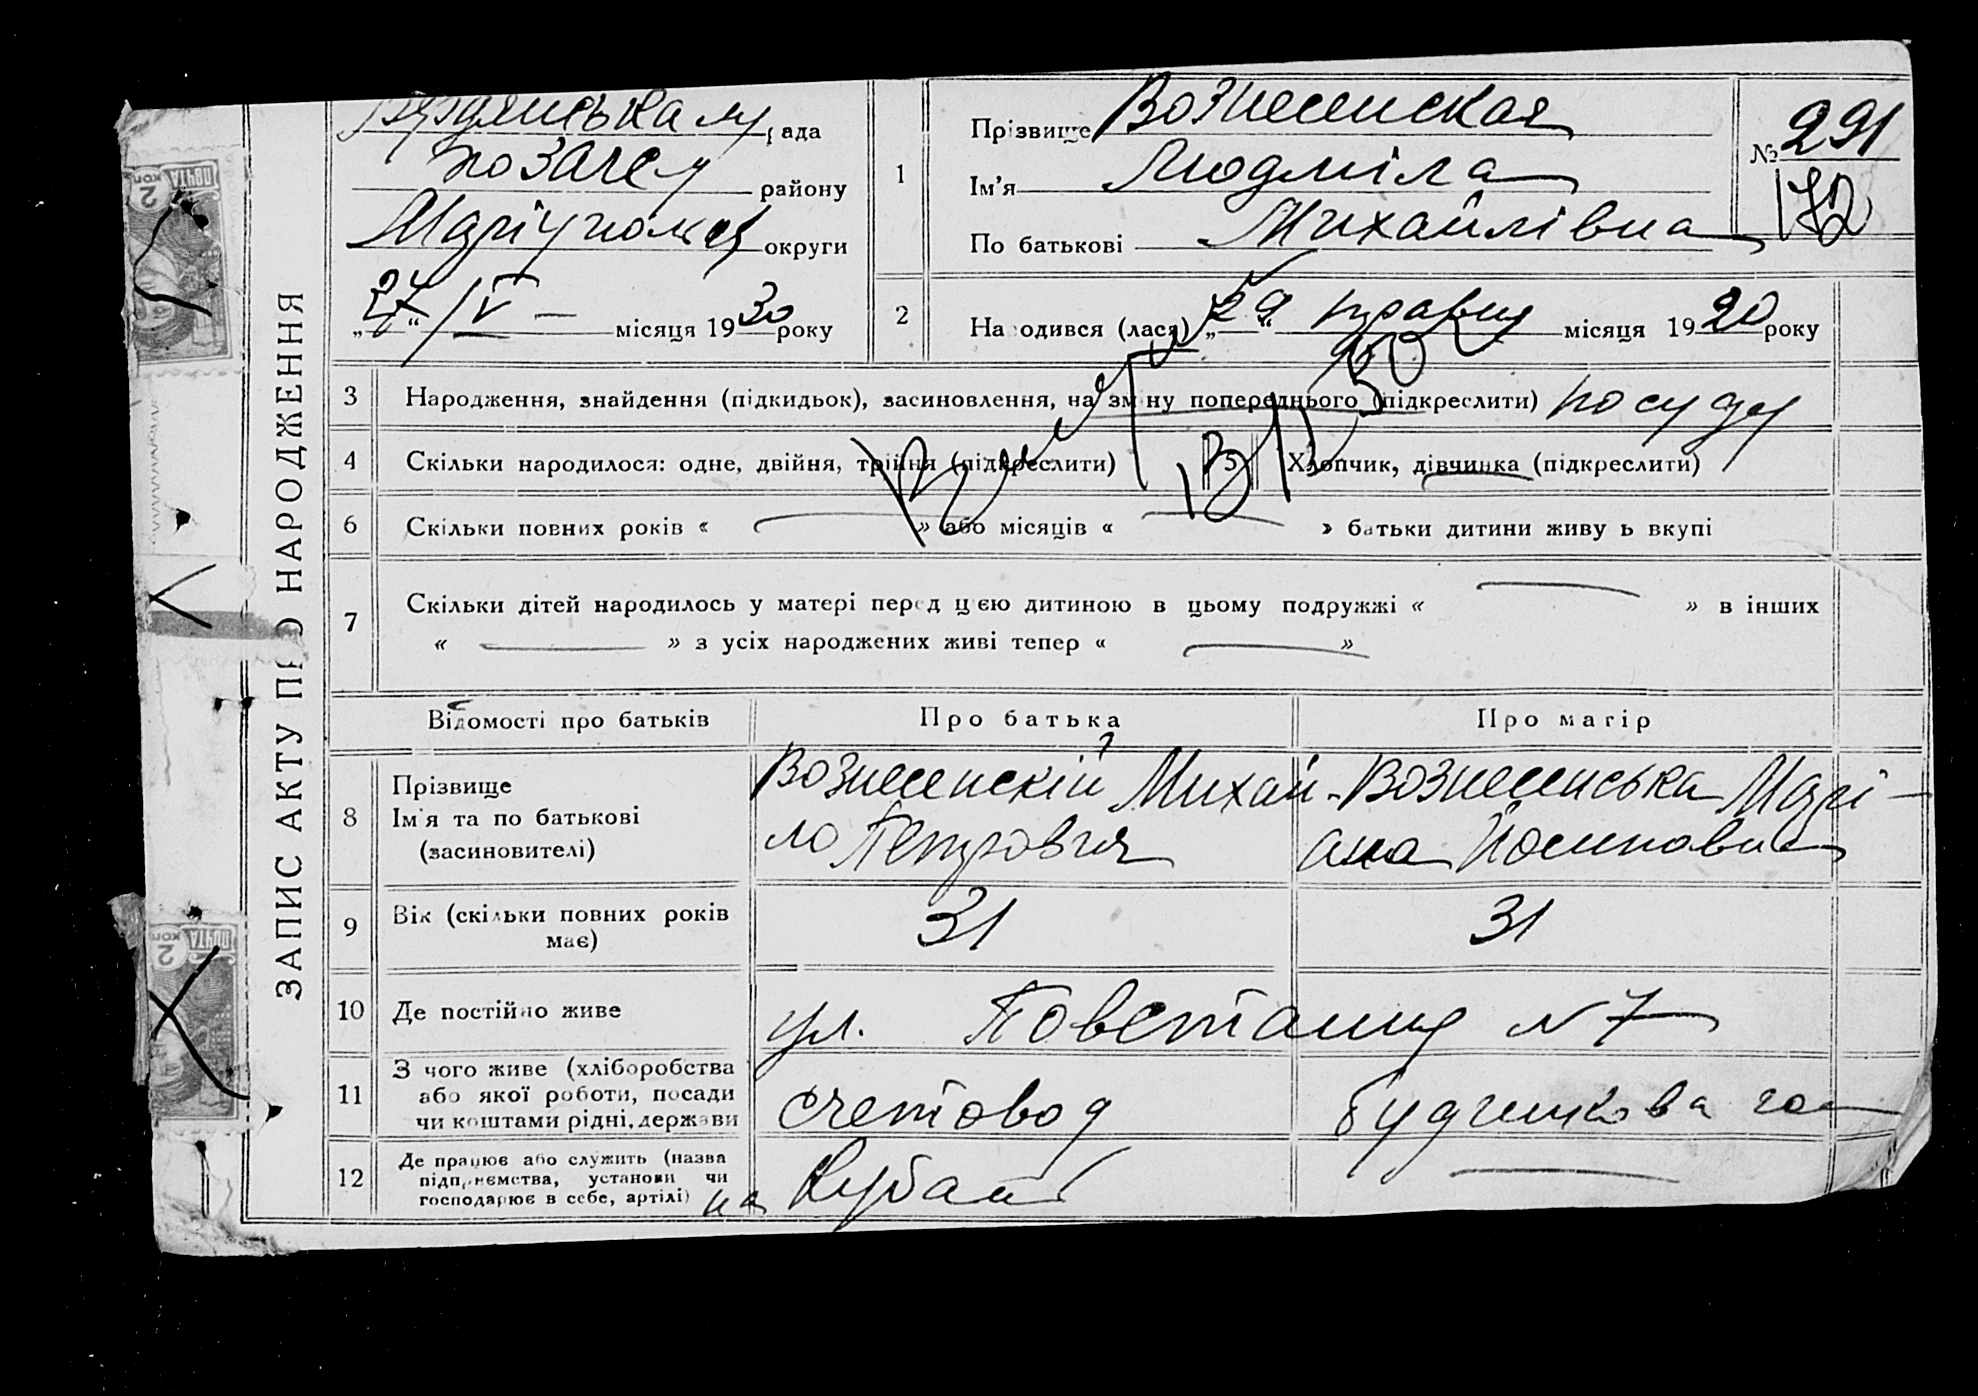 ЗАПИС АКТУ ПРО НАРОДЖЕННЯ
рада
району
округи
„27“ IV — місяця 1930 року
1
Прізвище Вознесенская
Ім’я Людміла
По батькові Михайлівна
№ 291
172
2
Народився (лася) „29“ травня місяця 1920 року
3 Народження, знайдення (підкидьок), засиновлення, на зміну попереднього (підкреслити) по суду
4 Скільки народилося: одне, двійня, трійня (підкреслити) 5 Хлопчик, дівчинка (підкреслити)
6 Скільки повних років « » або місяців « » батьки дитини живуть вкупі
7 Скільки дітей народилось у матері перед цією дитиною в цьому подружжі « » в інших
« » з усіх народжених живі тепер « »
Відомості про батьків Про батька Про матір
8 Прізвище
Ім’я та по батькові
(засиновителі)
Вознесенскій Михай-
ло Петрович
Вознесенська Марі-
ана Йосиповна
9 Вік (скільки повних років
має)
31 31
10 Де постійно живе ул. Повстания № 7
11 З чого живе (хліборобства
або якої роботи, посади
чи коштами рідні, держави
счетовод
12 Де працює або служить (назва
підприємства, установи чи
господарює в себе, артілі)
на Кубані
ПОЧТА
2 КОП
ПОЧТА
2 КОП